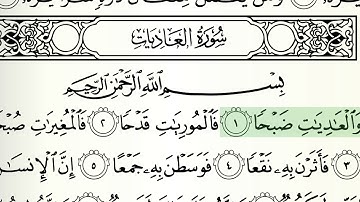 سُورَةُ العَادِيَاتِ
بِسْمِ ٱللَّهِ ٱلرَّحْمَٰنِ ٱلرَّحِيمِ
وَٱلْعَٰدِيَٰتِ ضَبْحًا ١ فَٱلْمُورِيَٰتِ قَدْحًا ٢ فَٱلْمُغِيرَٰتِ صُبْحًا
٣ فَأَثَرْنَ بِهِۦ نَقْعًا ٤ فَوَسَطْنَ بِهِۦ جَمْعًا ٥ إِنَّ ٱلْإِنسَٰنَ